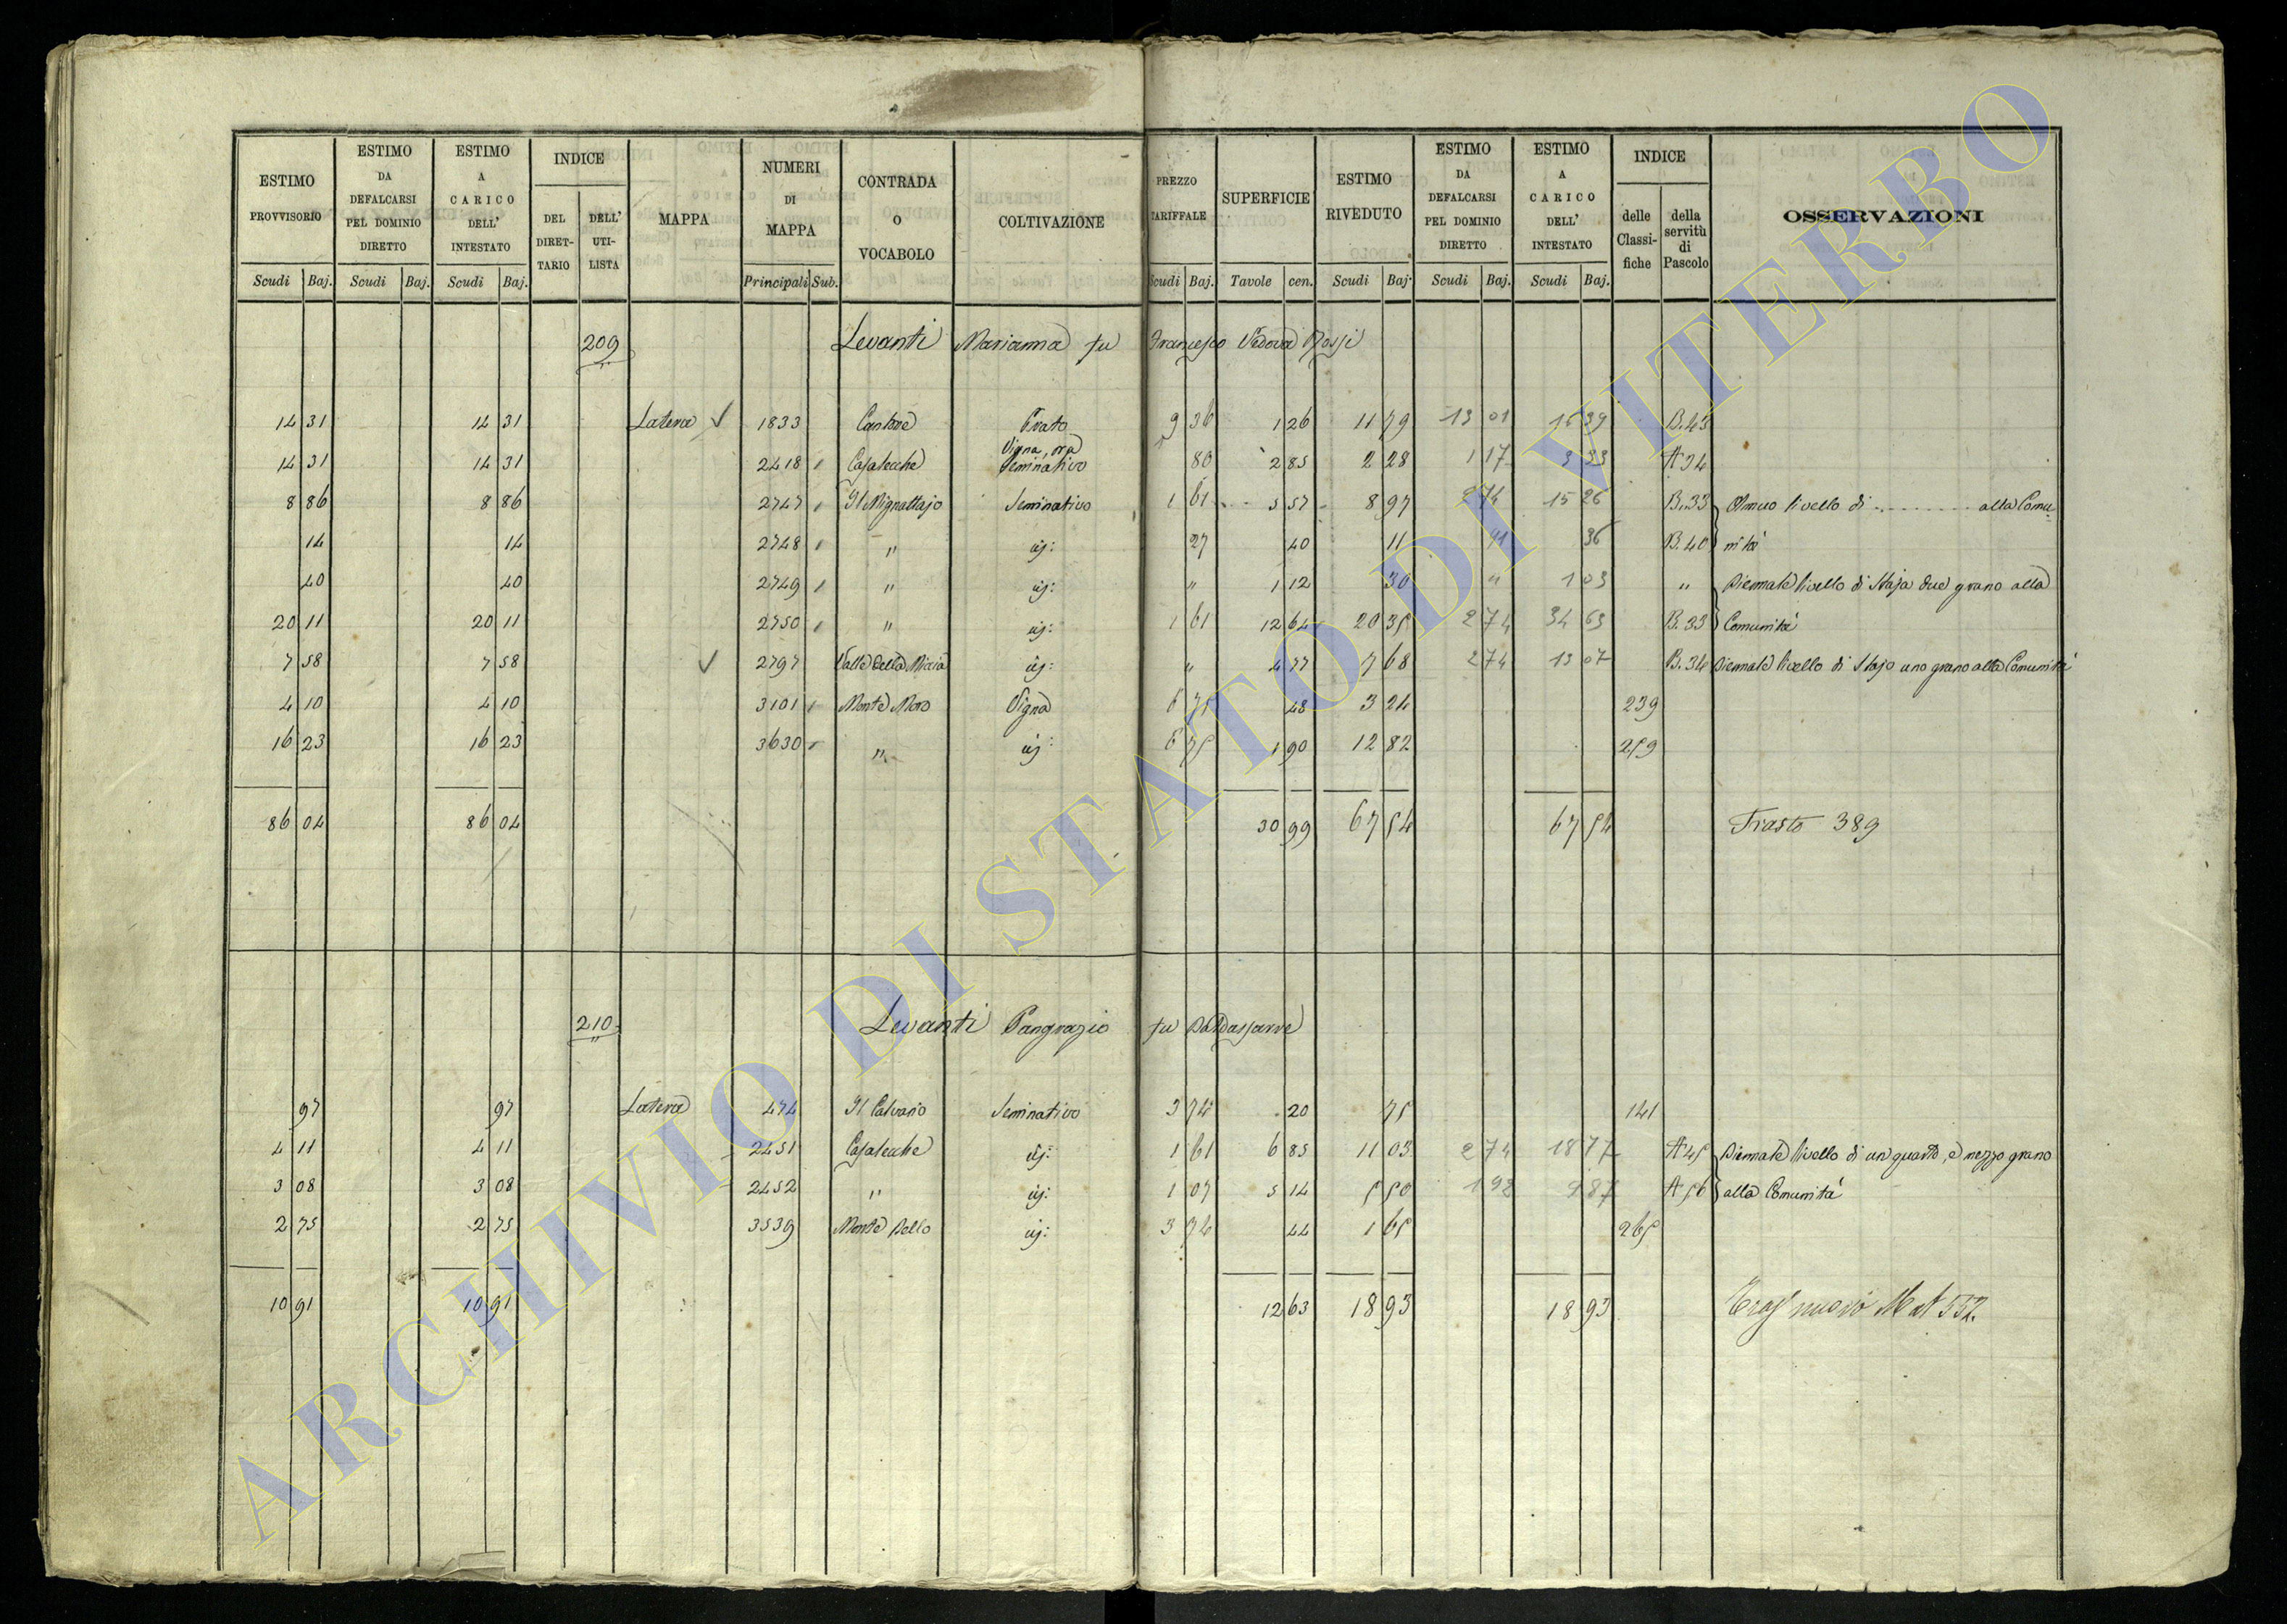 ESTIMO PROVVISORIO Scudi Baj. | ESTIMO DA DEFALCARSI PEL DOMINIO DIRETTO Scudi Baj. | ESTIMO A CARICO DELL' INTESTATO Scudi Baj. | INDICE DEL DIRETTARIO | DELL' UTILISTA | MAPPA | NUMERI DI MAPPA Principali Sub. | CONTRADA O VOCABOLO | COLTIVAZIONE | PREZZO TARIFFALE Scudi Baj. | SUPERFICIE Tavole cen. | ESTIMO RIVEDUTO Scudi Baj. | ESTIMO DA DEFALCARSI PEL DOMINIO DIRETTO Scudi Baj. | ESTIMO A CARICO DELL' INTESTATO Scudi Baj. | INDICE delle Classifiche | della servitù di Pascolo | OSSERVAZIONI
209 Levanti Marianna fu Francesco Vedova Rossi
14 31 14 31 Latera 1833 Prato 9 36 1 26 11 79 13 01 16 39 B.43
14 31 14 31 2418 Casalecche Vigna, ora Seminativo 80 2 85 2 28 1 17 3 33 A 34
8 86 8 86 2747 Il Mignattajo Seminativo 1 61 5 57 8 97 2 74 15 26 B.33 Annuo livello di .......... alla Comu-
14 14 2748 " id: 27 40 11 91 36 B.40 nità
40 40 2749 " id: " 1 12 30 " 1 03 " Biennale livello di Staja due grano alla
20 11 20 11 2750 " id: 1 61 12 64 20 35 2 74 34 63 B.33 Comunità
7 58 7 58 2797 Valle della Miccia id: " 4 77 7 68 2 74 13 07 B.34 Biennale livello di Stajo uno grano alla Comunità
4 10 4 10 3101 Monte Moro Vigna 6 75 48 3 24 239
16 23 16 23 3630 " id: 6 75 1 90 12 82 259
86 04 86 04 30 99 67 54 67 54 Trasto 389
210 Levanti Pangrazio fu Baldassarre
97 97 Latera 474 Il Calvario Seminativo 3 74 20 75 141
4 11 4 11 2451 Casalecche id: 1 61 6 85 11 03 2 74 18 77 A 45 Biennale livello di un quarto, e mezzo grano
3 08 3 08 2452 " id: 1 07 5 14 5 50 1 92 9 87 A 56 alla Comunità
2 75 2 75 3539 Monte Bello id: 3 74 44 1 65 265
10 91 10 91 12 63 18 93 18 93 Tras nuovo Mat 552.
ARCHIVIO DI STATO DI VITERBO